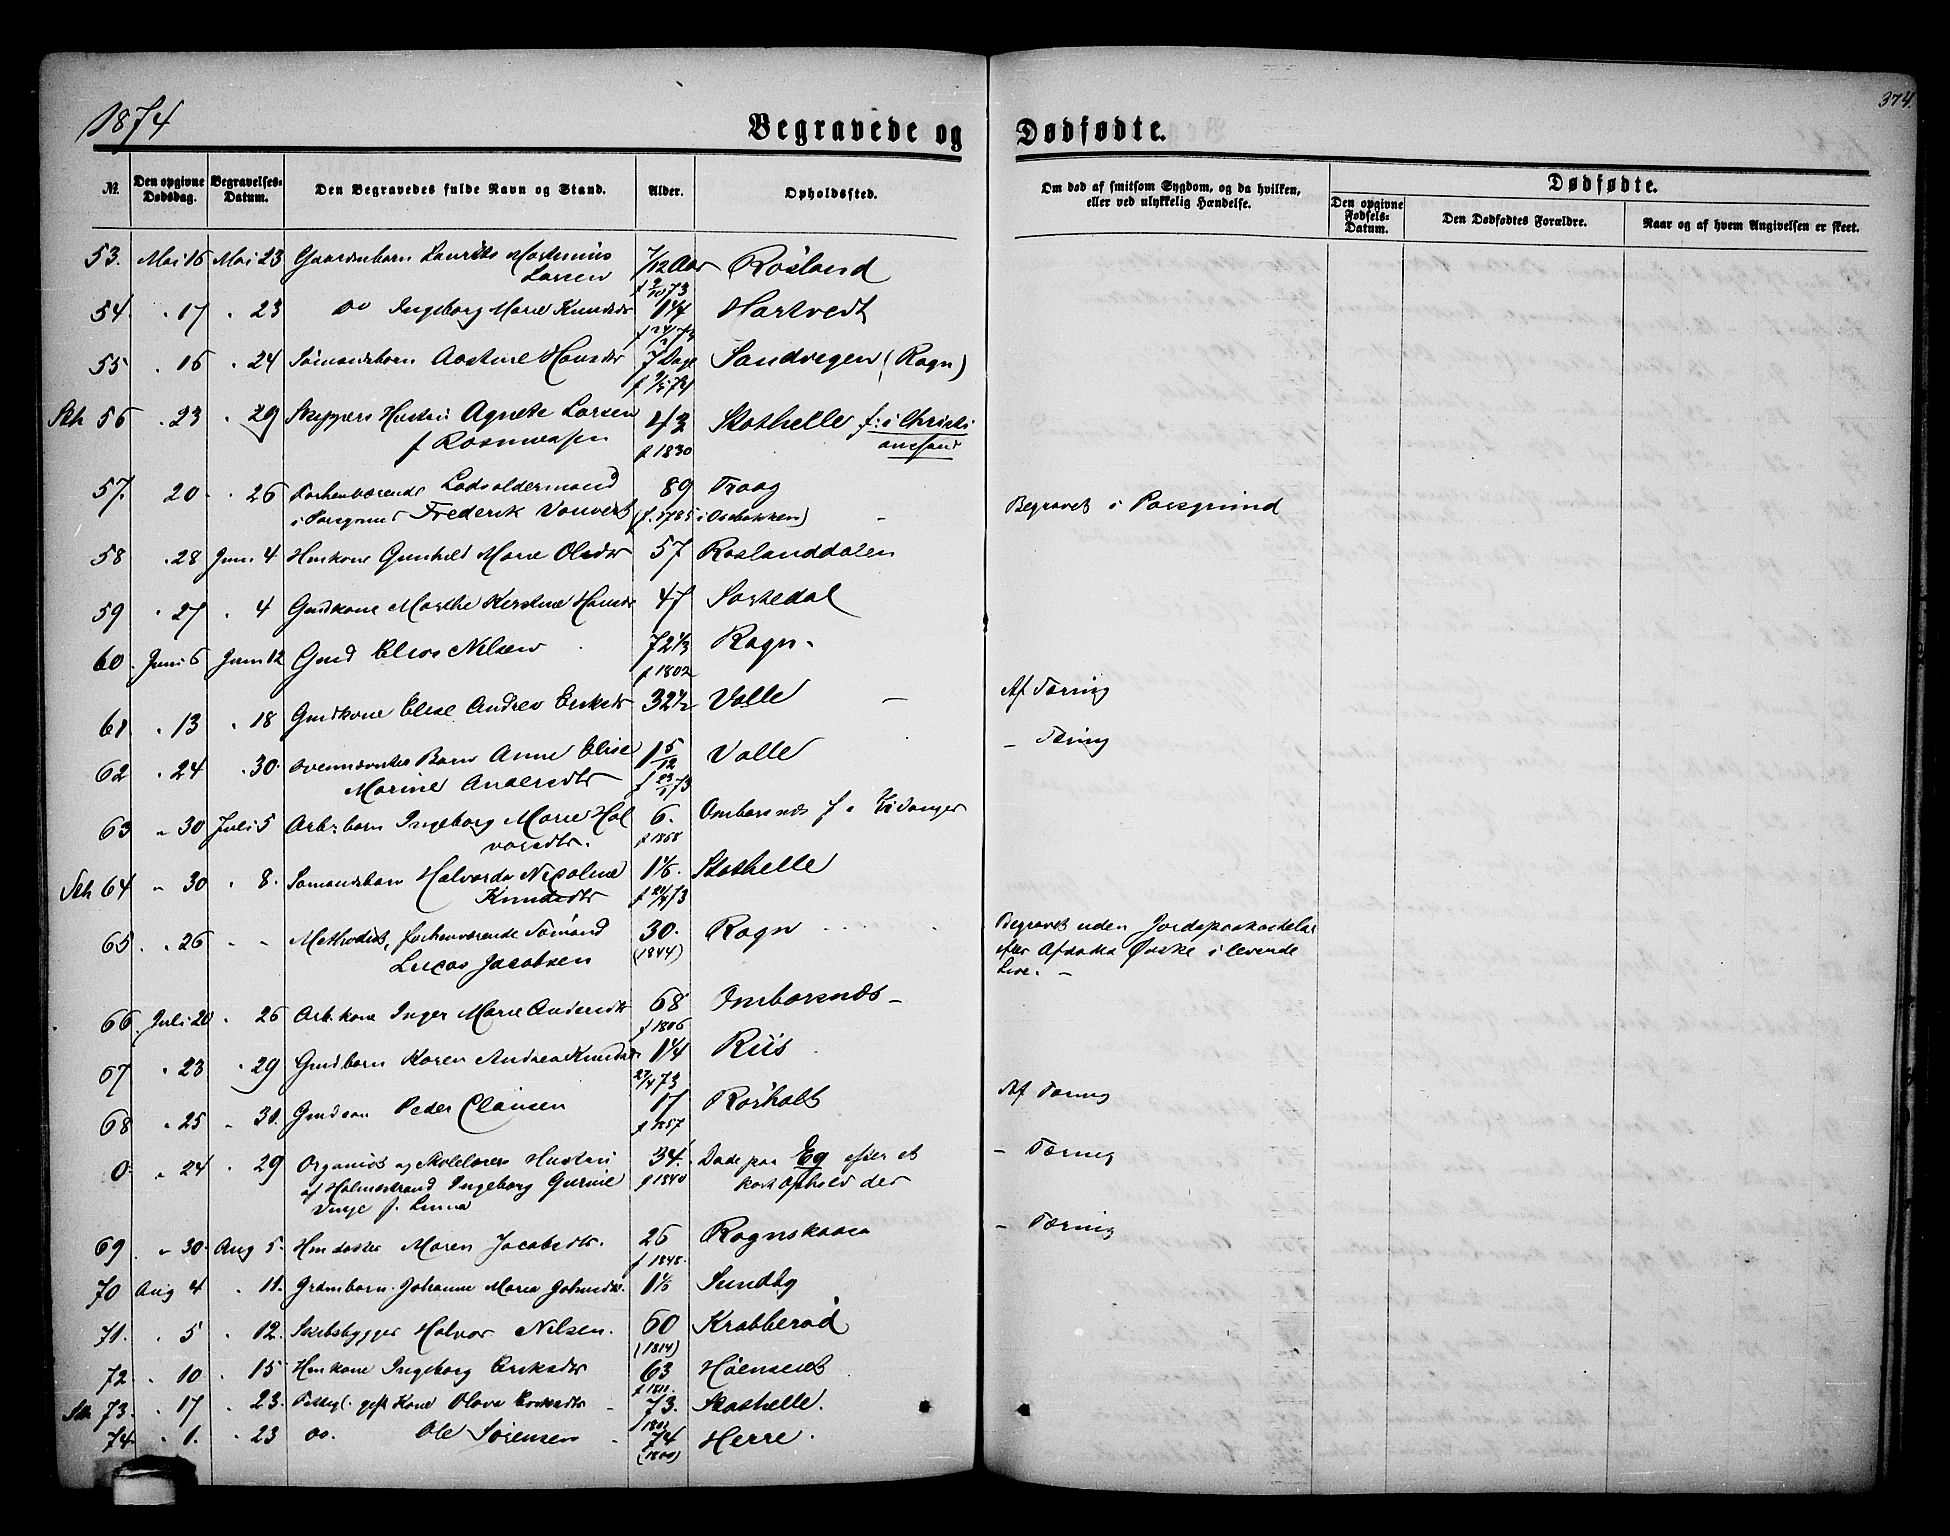 1874
374.
Begravede og Dødfødte.
№. Den opgivne Dødsdag. Begravelses-Datum. Den Begravedes fulde Navn og Stand. Alder. Opholdssted. Om død af smitsom Sygdom, og da hvilken, eller ved ulykkelig Hændelse. Dødfødte.
Den opgivne Fødsels-Datum. Den Dødfødtes Forældre. Naar og af hvem Angivelsen er skeet.
53. Mai 16 Mai 23 Gaardmbarn Laurits Martinius 7/12 Aar Rosland
Larsen f 9/10 73
54. " 17 " 23 Do Ingeborg Marie Knudsdr 1 1/4 Hartvedt
55 " 16 " 24 Sømandsbarn Hansdr 7 Dage Sandvigen (Rogn)
f 9/5 74
Sth 56 " 23 " 29 Skippers Hustru Agnete Larsen 43 Stathelle f: i Christi
f Rosmussen f 1830 ansand
57. 20 " 26 Forhenværende Lodsoldermand 89 Traag Begravet i Porsgrund
i Porsgrund Frederik (f. 1785 i Osebakken)
58 " 28 Juni 4 Hmkone Gunhild Marie Olsdr 57 Roslanddalen
59 " 27 " 4 Gmdkone Marthe Kirstine Hansdr 47 Sortedal
60. Juni 6 Juni 12 Gmd Elias Nilsen 72 1/3 Rogn.
f 1802
61. " 13 " 18 Gmdkone Elise Andrea Eriksdr 32 1/2 Valle Af Tæring
62 " 24 " 30. Ovennævntes Barn Anne Elise 1 5/12 Valle - Tæring
Marine Andersdtr f 23/1 73
63 " 30 Juli 5 Arb:barn Ingeborg Marie Hal 6. Omborsnæs f. i Eidanger
vorsdtr. f 1868
Sth 64 " 30 " 8. Sømandsbarn Halvorda Nicoline 1 1/6. Stathelle
Knudsdtr f 24/4 73
65. " 26 " " Methodist, forhenværende Sømand 30. Rogn Begravet uden Jordspaakastelse
Lucas Jacobsen (1844) efter Afdødes Ønske i levende
Live. -
66. Juli 20 " 26 Arb.kone Inger Marie Andersdtr 68 Omborsnæs
f 1806
67 " 23 " 29 Gmdbarn Karen Andrea Knudsdr 1 1/4 Riis
27/4 73
68 " 25 " 30. Gmdsøn Peder Clausen 17 Rørholt Af Tæring
f 1857
0. " 24 " 29 Organist og Skolelærers Hustru 34. Døde paa Eg efter et - Tæring
af Holmestrand Ingeborg Gurine f 1840 kort Ophold der
Vinje f.
69 " 30 Aug 5. Hmdatter Maren Jacobsdtr. 26 Rognskaasa - Tæring
f 1848.
70 Aug 4 " 11. Grdmbarn. Johanne Marie 1 1/3 Sundby
71. " 5 " 12. Skibsbygger Halvor Nilsen. 60 Krabberød
(1814)
72 " 10 " 15 Hmkone Ingeborg Eriksdtr 63 Høenseet
f 1811.
Sth 73. " 17 " 23. Fattigl. gift Kone Olava 73. Stathelle.
f 1801
74. " 1. " 23 Do. Ole Sørensen 74 Herre.
(1800)